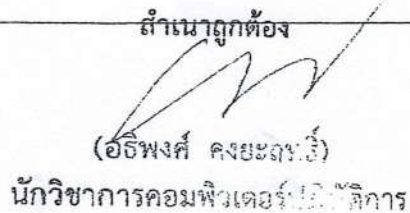 สำเนาถูกต้อง
(อธิพงศ์
นักวิชาการคอมพิวเตอร์ปฏิบัติการ